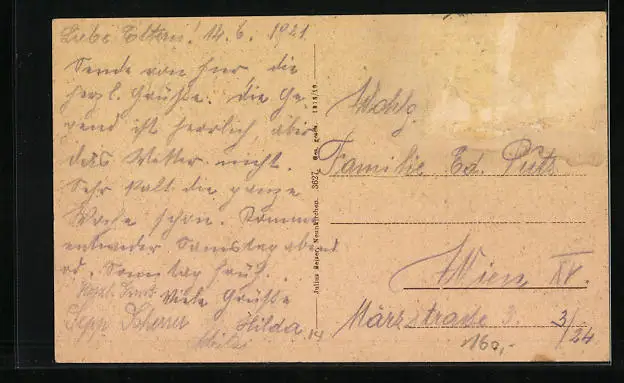 Liebe Eltern! 14. 6. 1921
Sende von hier die
herzl. Grüße. die Ge-
gend ist herrlich, aber
das Wetter nicht.
Sehr kalt die ganze
Woche schon. Komme
entweder Samstag abend
od. Sonntag früh.
Viele Grüße
Sepp Scherrer Hilda
Julius Seiser, Neunkirchen. 3627. Ges. gesch. 1918/19
Wohlg.
Familie Ed.
Wien XV.
Märzstrasse 3.
3/24
160,-